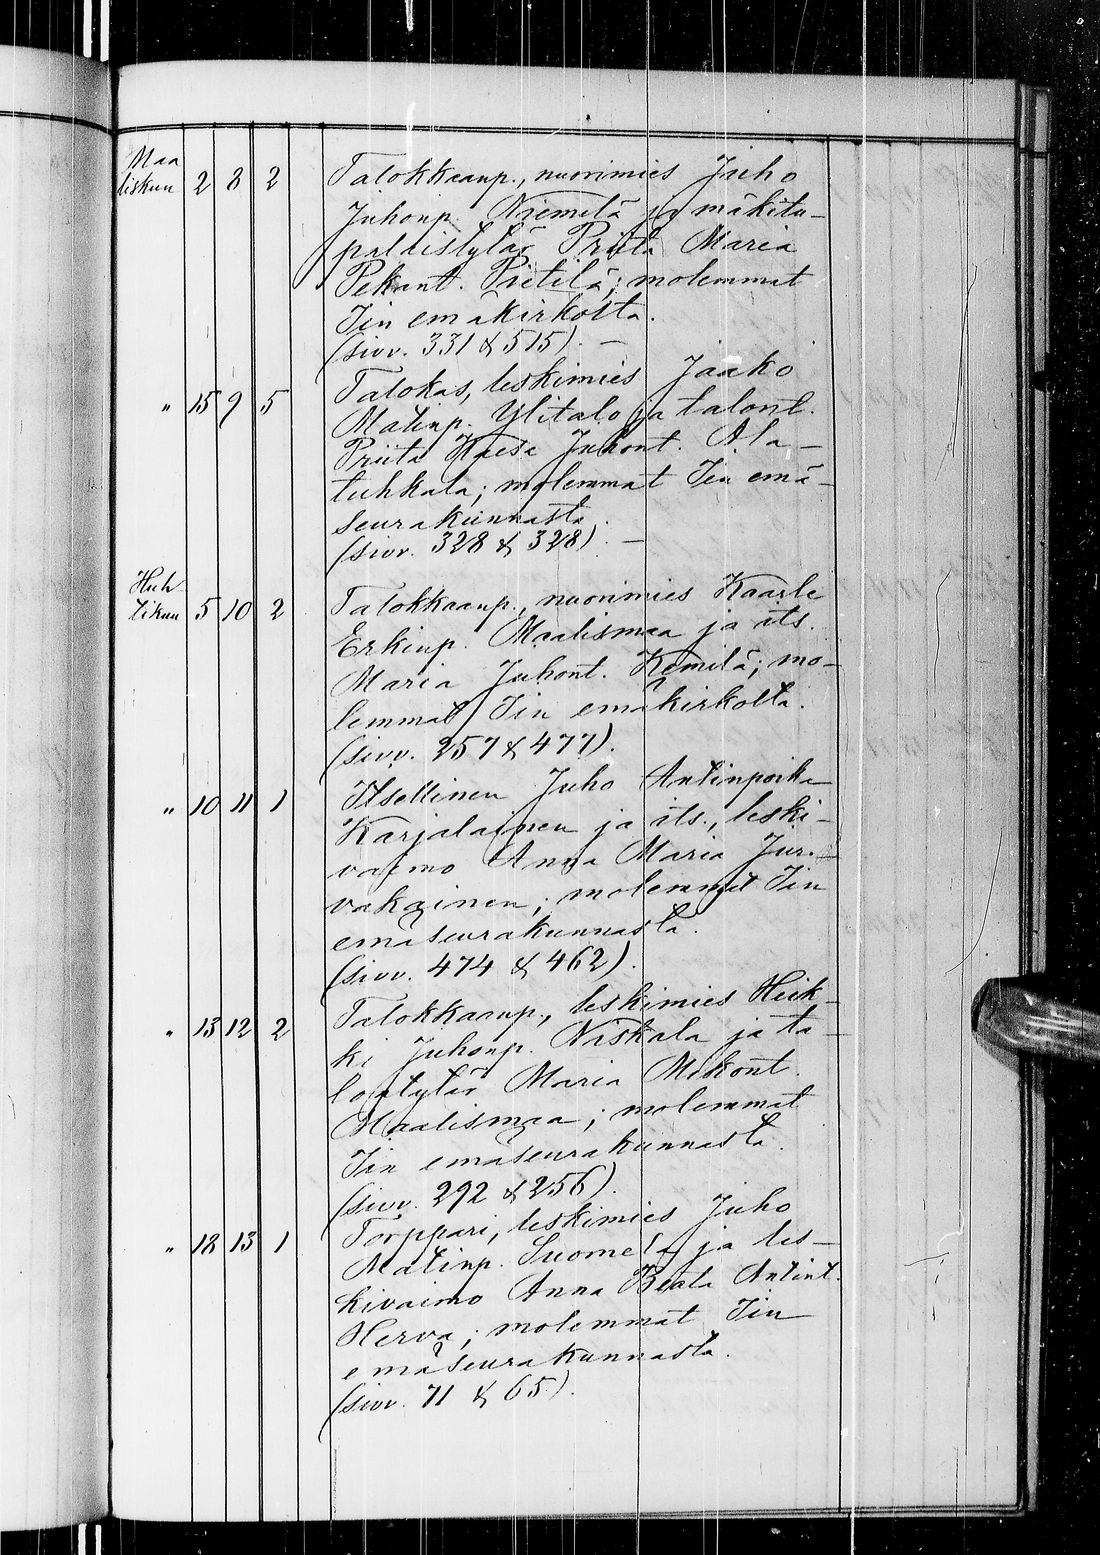 Maa
liskun 2 8 2 Talokkaanp., nuorimies Juho
Juhonp. Niemelä ja mäkitu-
palaistytär Priita Maria
Pekant. Pietilä; molemmat
Iin emäkirkolta.
(sivv. 331 & 515). —
" 15 9 5 Talokas, leskimies Jaako
Matinp. Ylitalo ja talont.
Priita Kaisa Juhont. Ala-
tuhkala; molemmat Iin emä-
seurakunnasta.
(sivv. 328 & 328). —
Huh-
tikuu 5 10 2 Talokkaanp., nuorimies Kaarle
Erkinp. Maalismaa ja its.
Maria Juhont. Kemilä; mo-
lemmat Iin emäkirkolta.
(sivv. 257 & 477).
" 10 11 1 Itsellinen Juho Antinpoika
Karjalainen ja its., leski-
vaimo Anna Maria Jur-
vakainen; molemmat Iin
emäseurakunnasta.
(sivv. 474 & 462).
" 13 12 2 Talokkaanp., leskimies Heik-
ki Juhonp. Niskala ja ta-
lontytär Maria Mikont.
Maalismaa; molemmat
Iin emäseurakunnasta.
(sivv. 292 & 256).
" 18 13 1 Torppari, leskimies Juho
Matinp. Suomela ja les-
kivaimo Anna Beata Antint.
Herva; molemmat Iin
emäseurakunnasta.
(sivv. 71 & 65).